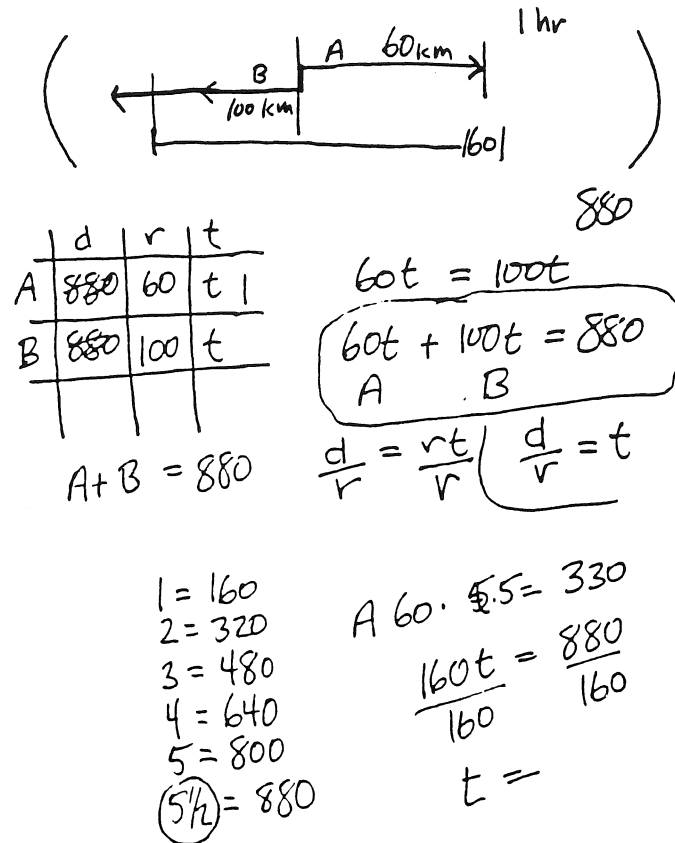 1 hr
A 60km
B
100 km
160
880
d r t
A 880 60 t 1
B 880 100 t
60t = 100t
60t + 100t = 880
A B
A + B = 880
d/r = rt/r
d/r = t
1 = 160
2 = 320
3 = 480
4 = 640
5 = 800
5 1/2 = 880
A 60 · 5.5 = 330
160t/160 = 880/160
t =